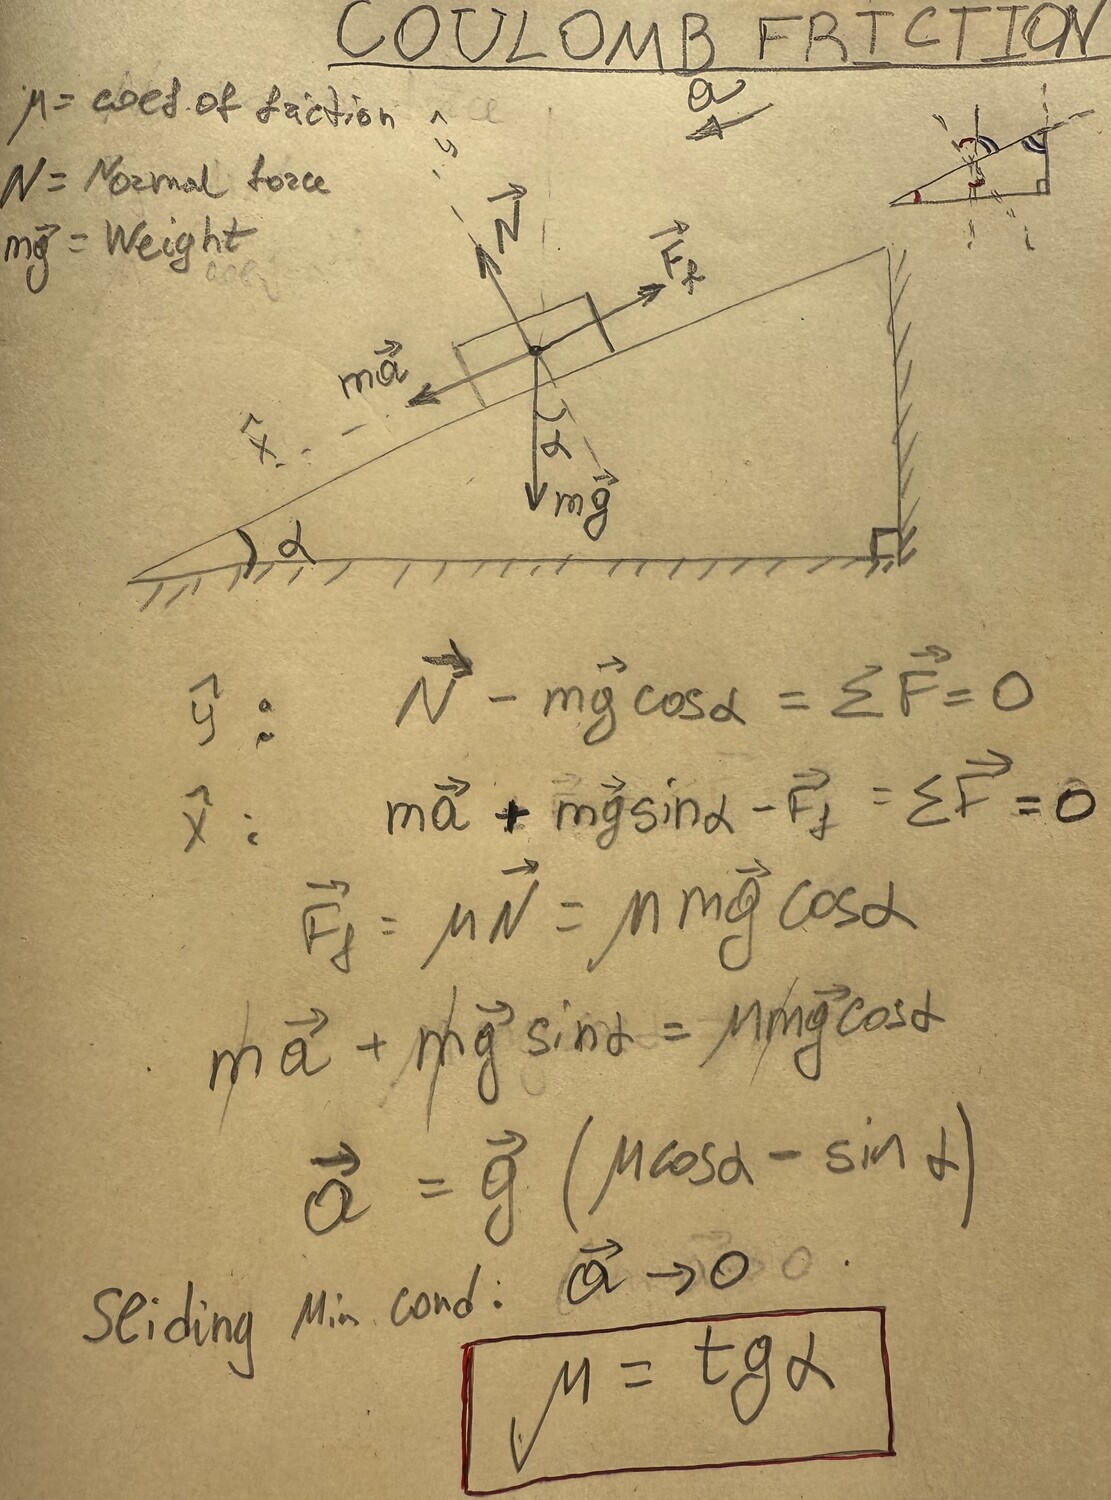 COULOMB FRICTION
μ = coef of friction
N = Normal force
mg⃗ = Weight
a⃗
ŷ
N⃗
F⃗f
ma⃗
x̂
α
mg⃗
α
ŷ : N⃗ - mg⃗ cosα = ΣF⃗ = 0
x̂ : ma⃗ + mg⃗ sinα - F⃗f = ΣF⃗ = 0
F⃗f = μN⃗ = μmg⃗ cosα
ma⃗ + mg⃗ sinα = μmg⃗ cosα
a⃗ = g⃗ (μcosα - sinα)
Sliding Min. cond: a⃗ → 0
μ = tgα